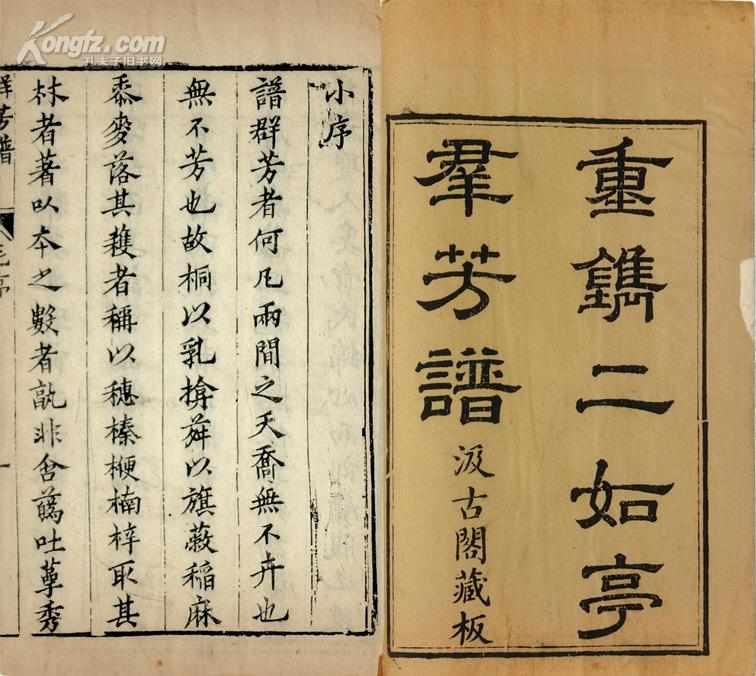 Kongfz.com
孔夫子旧书网
重鐫二如亭
羣芳譜
汲古閣藏板
小序
譜群芳者何凡兩間之夭喬無不卉也
無不芳也故桐以乳搶荈以旗菽稲麻
黍麥落其穫者稱以穗榛楩楠梓取其
材者著以本之數者孰非含蘤吐蕚秀
群芳譜
一